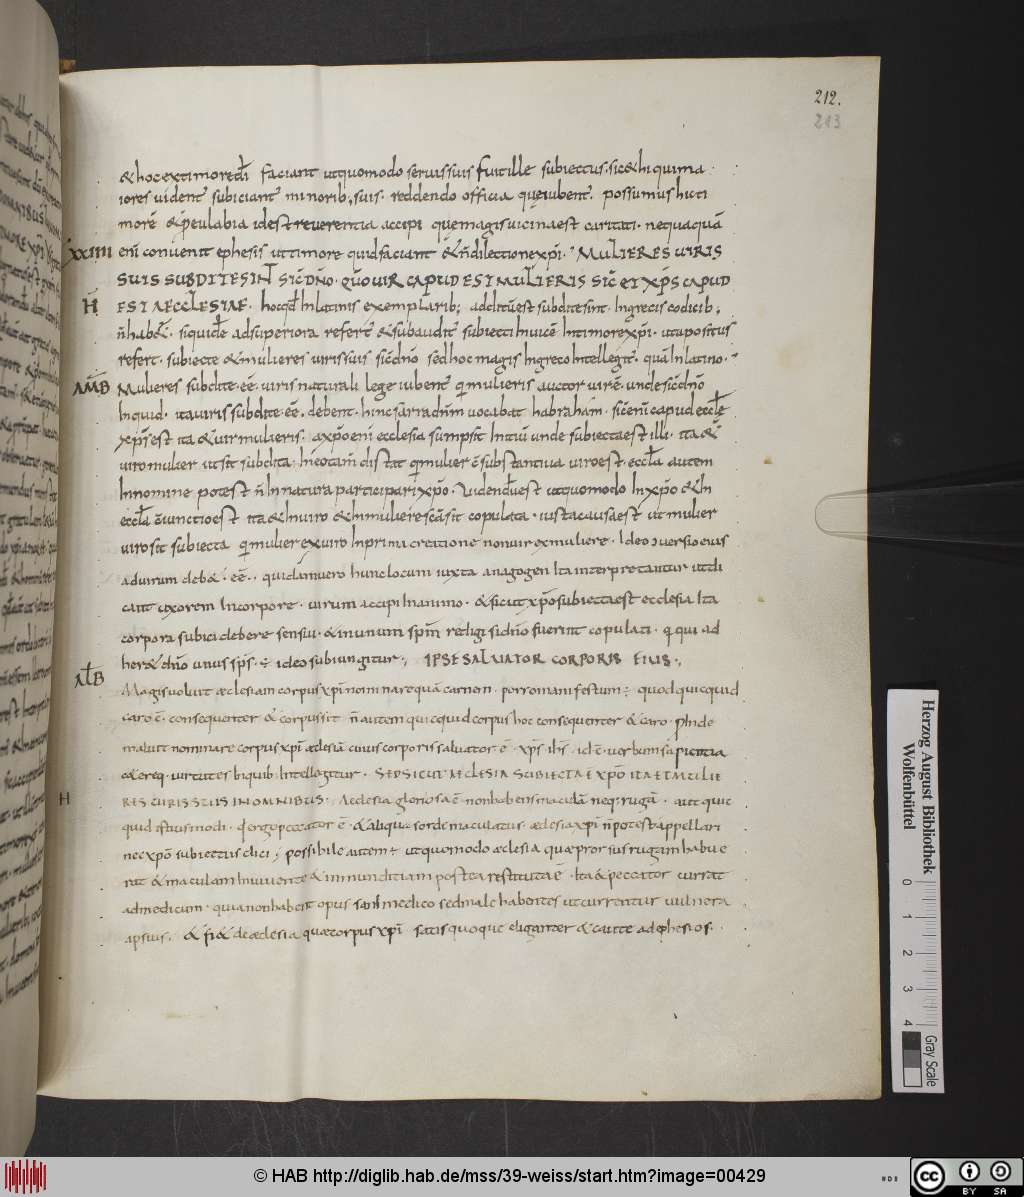 212.
213
& hoc ex timore dī faciant ut quomodo servis suis fuit ille subiectus. sic & hi qui ma
iores videntᷣ subiciant minorib; suis. reddendo officia que iubentᷣ. possumus hic ti
morē & p̄ eulabia id est reverentia accipi que magis vicina est caritati. nequaquā
XXIIII enī convenit ephesis ut timore quid faciant & n̄ dilectione xp̄i. MULIERES VIRIS
SUIS SUBDITE SINT SIC̄ DN̄O. QUŌ VIR CAPUD EST MULIERIS SIC̄ ET XP̄S CAPUD
H̄ EST AECCLESIAE. hoc qd̄ In latinis exemplarib; additū est subdite sint. In grecis codicib;
n̄ hab&ᷣ. siquidē ad superiora refertᷣ & subauditᷣ subiecti Invicē In timore xp̄i. ut upositus
refert. subiecte & mulieres viris suis sic̄ dn̄o sed hoc magis In greco Intellegitᷣ. quā In latino.
AMB Mulieres subdite. eē. viris naturali lege iubentᷣ qi mulieris auctor vir ē. unde sic̄ dn̄o
Inquid. ita viris subdite. eē. debent. hinc sarra dn̄m vocabat habrahám. sic̄ enī capud eccl̄e
xp̄s est ita & vir mulieris. a xp̄o enī ecclesia sumpsit Initiū unde subiecta est illi. ita &
viro mulier ut sit subdita; In eo tam̄ distat qi mulier c̄substantiva viro est. eccl̄a autem
In nomine potest n̄ In natura participari xp̄o. Videndū est ut quomodo In xp̄o & In
eccl̄a c̄iunctio est ita & In viro & In muliere scā sit copulata. iusta causa est ut mulier
viro sit subiecta qi mulier ex viro In prima creatione non vir ex muliere. Ideo ɔversio eius
ad virum deb& . eē.. quidam vero hunc locum iuxta anagogen Ita interpretantur ut di
cant uxorem In corpore. virum accipi In animo. & sicut xp̄o subiecta est ecclesia Ita
corpora subici debere sensui. & in unum sp̄m redigi si dn̄o fuerint copulati. q qui ad
her& dn̄o unus sp̄s. ē ideo subiungitur; IPSE SALVATOR CORPORIS EIUS;
ALB Magis voluit æclesiam corpus xp̄i nominare quā carnem. porro manifestum ē quod quicquid
caro ē. consequenter & corpus sit n̄ autem quicquid corpus hoc consequenter & caro. proinde
maluit nominare corpus xp̄i æclesiā cuius corporis salvator ē. xp̄s ihs̄. id ē. verbum sapientia
cæterę q. virtutes In quib; Intellegitur. SED SICUT AECLESIA SUBIECTA E XP̄O ITA ET MULIE
H RES VIRIS SUIS IN OMNIBUS. Aeclesia gloriosa ē non habens maculā neq; rugā. aut quic
quid istiusmodi. q̄ ergo peccator ē. & aliqua sorde maculatus. æclesia xp̄i n̄ potest appellari
nec xp̄o subiectus dici; possibile autem ē ut quomodo æclesia quæ prorsus rugam habue
rat & maculam In iuventute & inmunditiam postea restituta ē. Ita & peccator currat
ad medicum. quia non habent opus sani medico sed male habentes ut currentur vulnera
ipsius. & fi& de æclesia quæ corpus xp̄i satis quoque eliganter & caute ad ephesios.
Herzog August Bibliothek
Wolfenbüttel
0 1 2 3 4
Gray Scale
© HAB http://diglib.hab.de/mss/39-weiss/start.htm?image=00429
cc BY SA